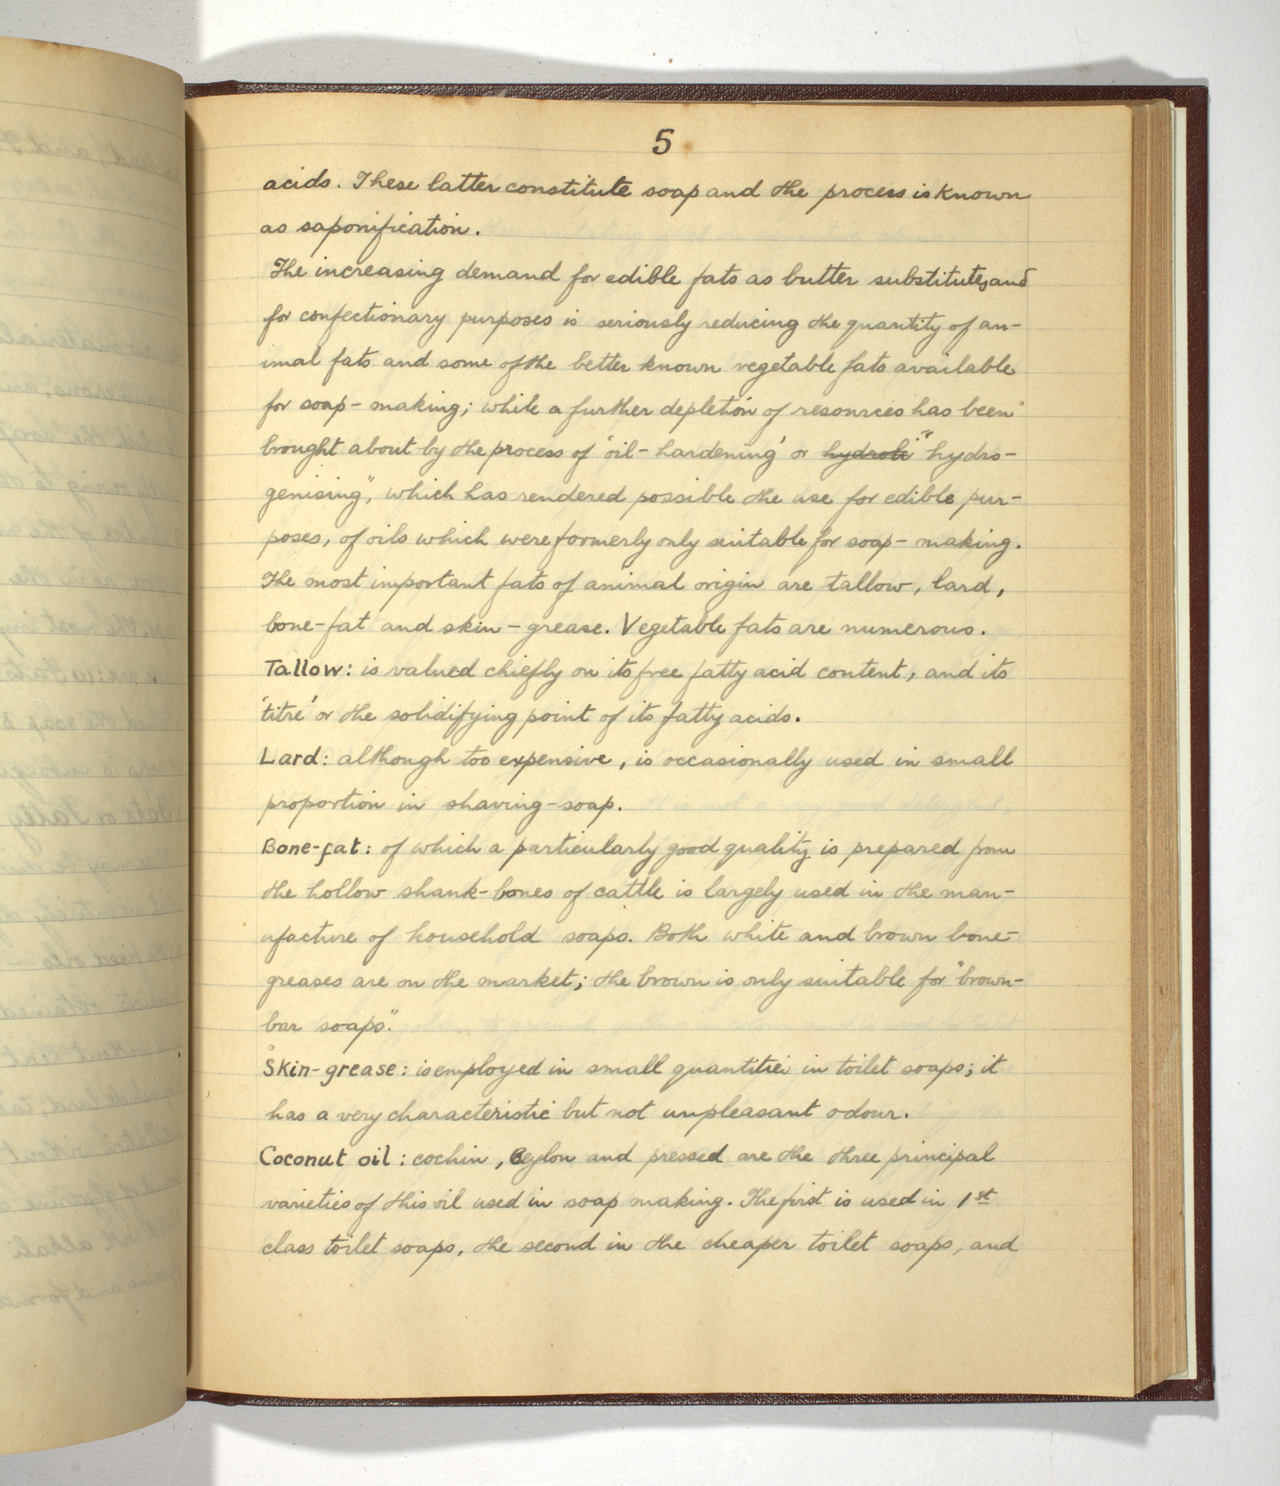 5
acids. These latter constitute soap and the process is known
as saponification.
The increasing demand for edible fats as butter substitutes, and
for confectionary purposes is seriously reducing the quantity of an-
imal fats and some of the better known vegetable fats available
for soap-making; while a further depletion of resources has been
brought about by the process of 'oil-hardening' or hydroli "hydro-
genising", which has rendered possible the use for edible pur-
poses, of oils which were formerly only suitable for soap-making.
The most important fats of animal origin are tallow, lard,
bone-fat and skin-grease. Vegetable fats are numerous.
Tallow: is valued chiefly on its free fatty acid content, and its
'titre' or the solidifying point of its fatty acids.
Lard: although too expensive, is occasionally used in small
proportion in shaving-soap.
Bone-fat: of which a particularly good quality is prepared from
the hollow shank-bones of cattle is largely used in the man-
ufacture of household soaps. Both white and brown bone-
greases are on the market; the brown is only suitable for "brown-
bar soaps".
Skin-grease: is employed in small quantities in toilet soaps; it
has a very characteristic but not unpleasant odour.
Coconut oil: cochin, Ceylon and pressed are the three principal
varieties of this oil used in soap making. The first is used in 1st
class toilet soaps, the second in the cheaper toilet soaps, and